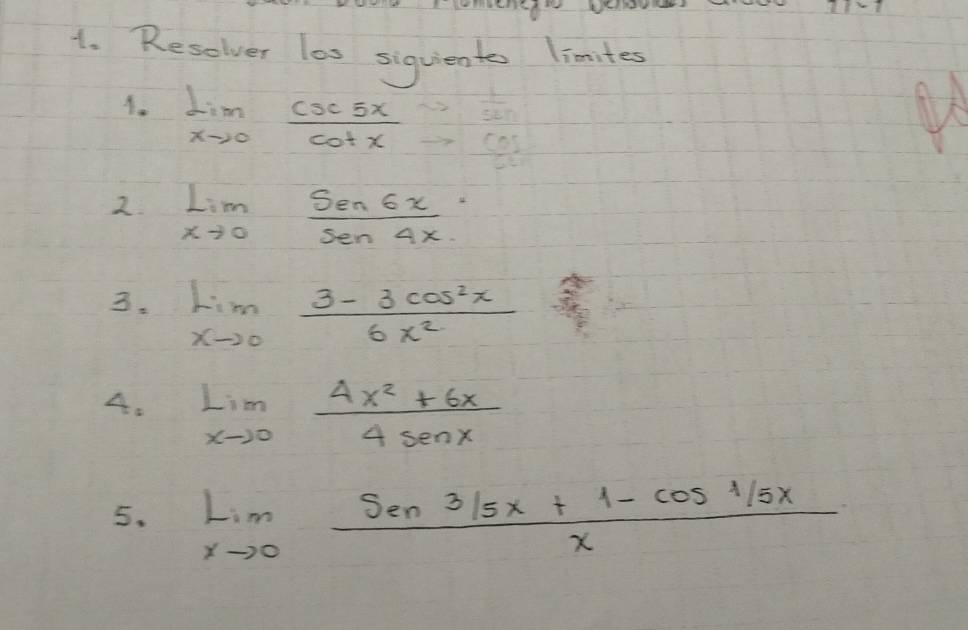 1. Resolver los siguientes límites
1. Lim x→0 csc 5x / cot x → 1/sen → cos/sen
2. Lim x→0 Sen 6x / sen 4x.
3. Lim x→0 3 - 3 cos²x / 6x²
4. Lim x→0 4x² + 6x / 4 senx
5. Lim x→0 Sen 3/5x + 1 - cos 1/5x / x